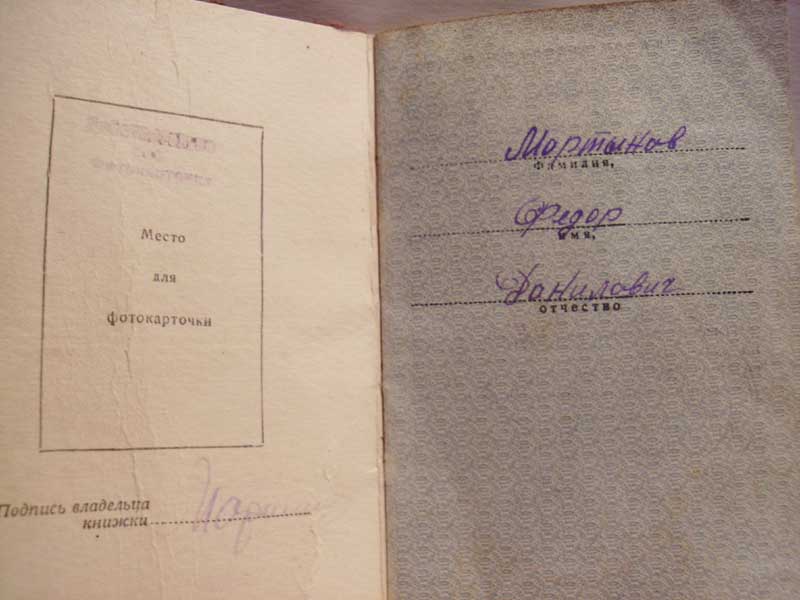 Действительно
без
фотокарточки
Место
для
фотокарточки
Подпись владельца
книжки
Мартынов
фамилия,
Федор
имя,
Данилович
отчество